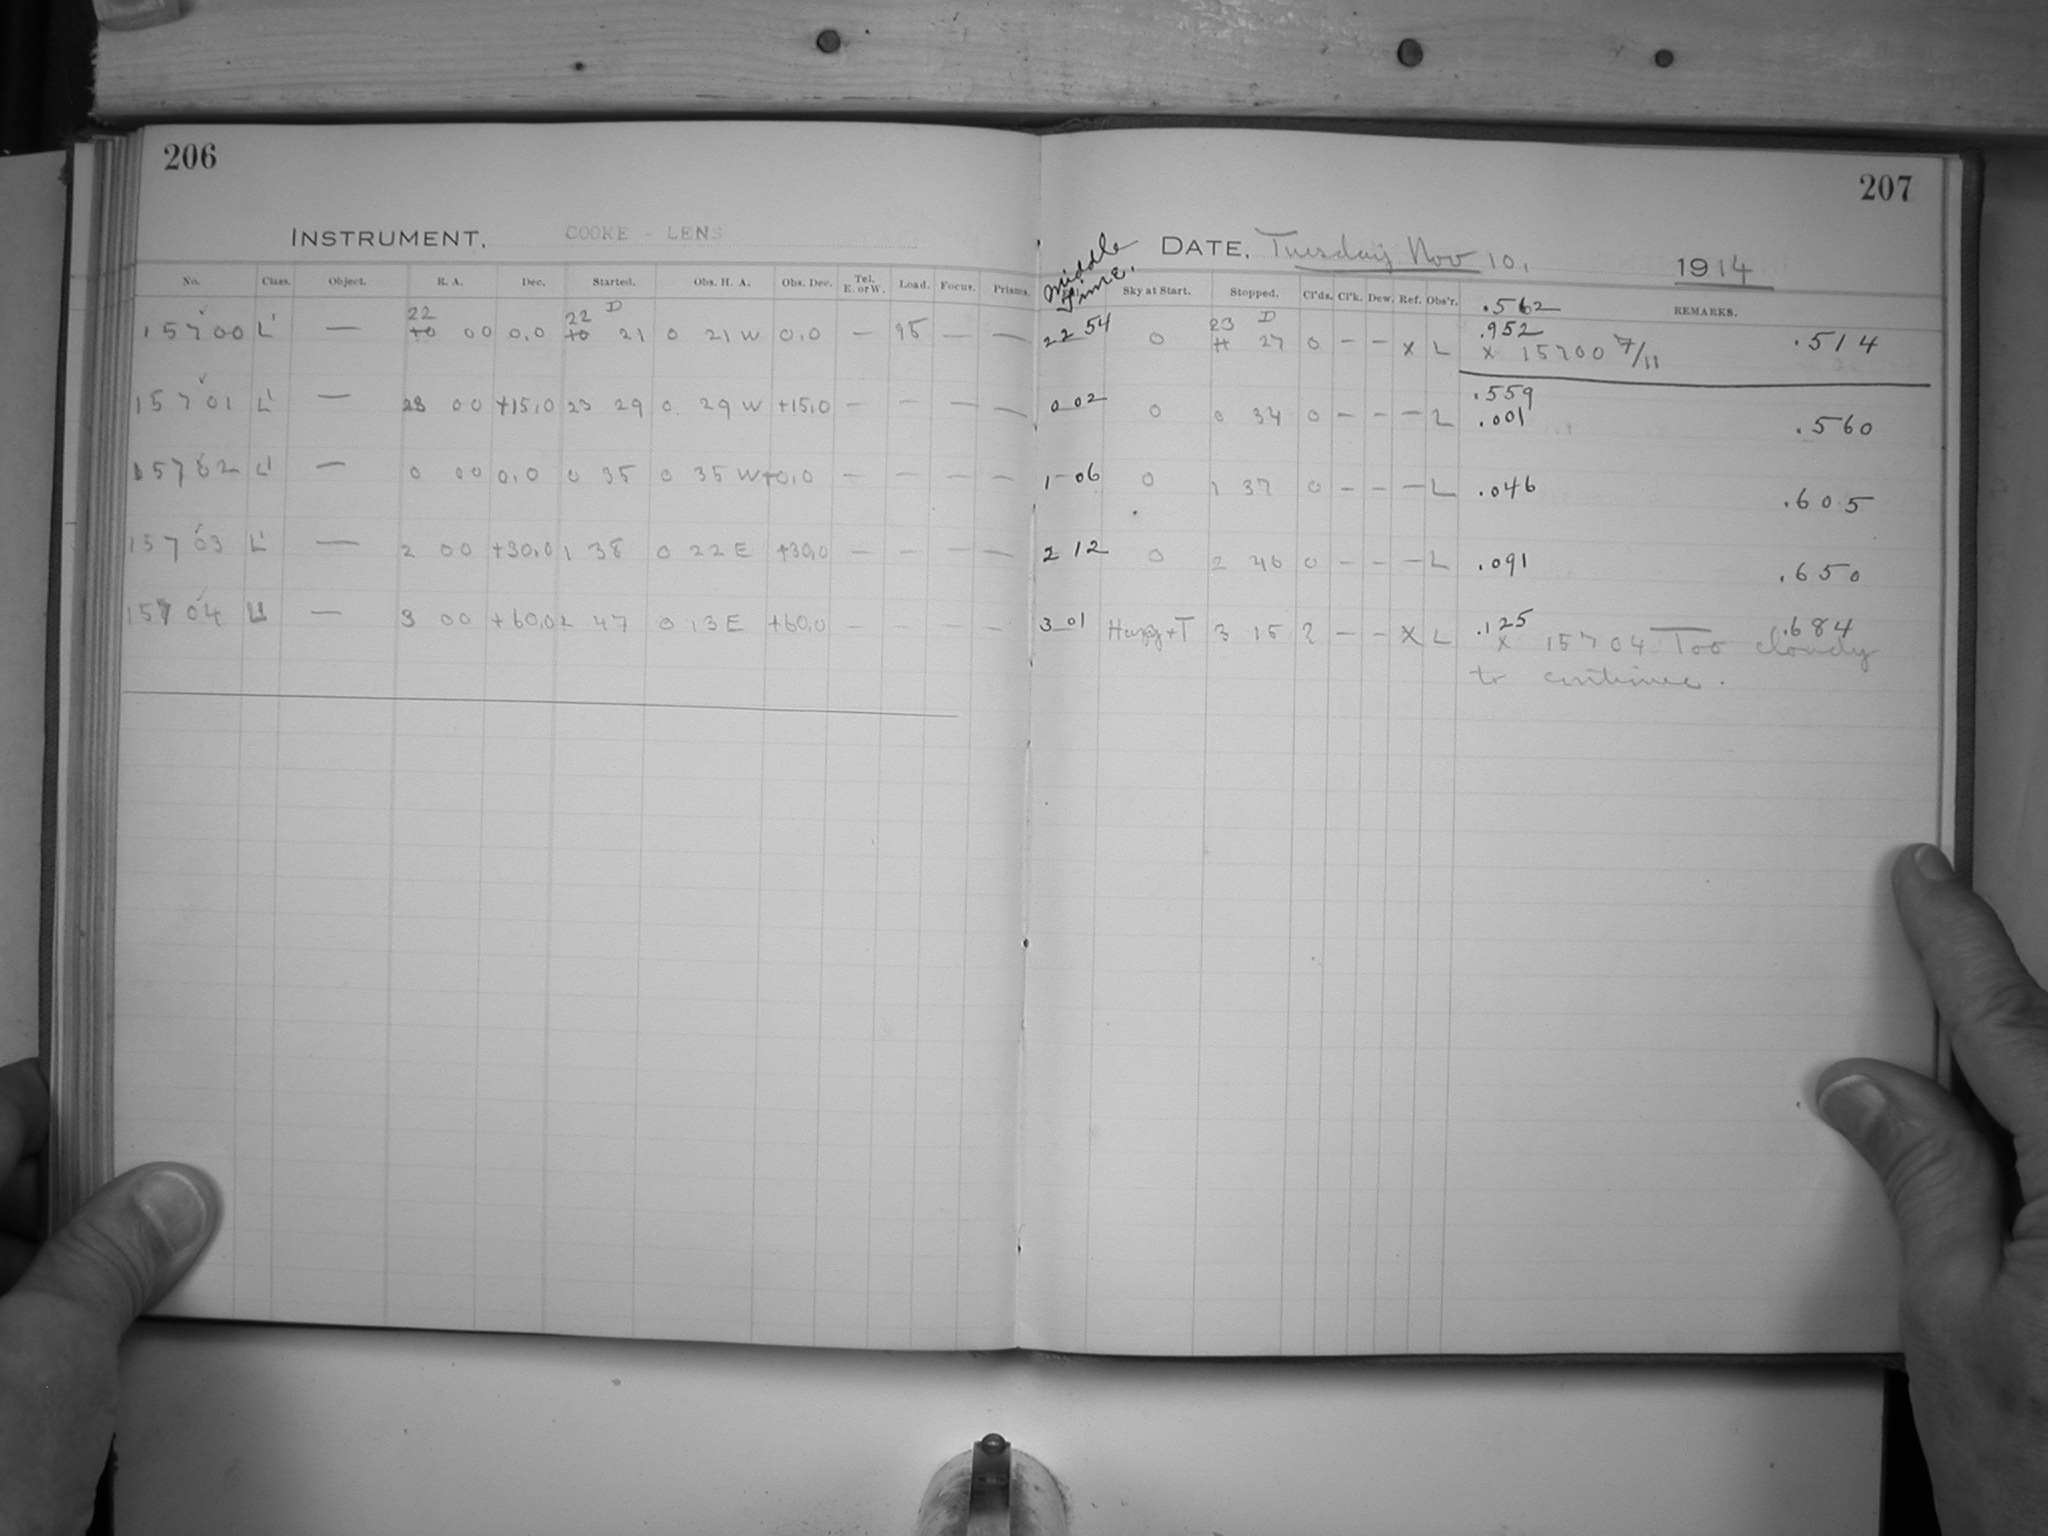 206
207
INSTRUMENT. COOKE - LENS
Middle Time.
DATE. Tuesday Nov 10, 1914
No. Class. Object. R. A. Dec. Started. Obs. H. A. Obs. Dec. Tel. E. or W. Load. Focus. Prisms. Sky at Start. Stopped. Cl'ds. Cl'k. Dew. Ref. Obs'r. REMARKS.
.562
22 22 D 23 D .952
15700 L' — 10 00 0,0 10 21 0 21 W 0,0 — 95 — — 22 54 0 11 27 0 — — X L X 15700 7/11 .514
.559
15701 L' — 23 00 +15,0 23 29 0 29 W +15,0 — — — — 0 02 0 0 34 0 — — — L .001 .560
15702 L' — 0 00 0,0 0 35 0 35 W +0,0 — — — — 1 06 0 1 37 0 — — — L .046 .605
15703 L' — 2 00 +30,0 1 38 0 22 E +30,0 — — — — 2 12 0 2 46 0 — — — L .091 .650
15704 — 3 00 +60,0 2 47 0 13 E +60,0 — — — — 3 01 Hazy + T 3 15 ? — — X L .125 .684
X 15704 Too cloudy
to continue.